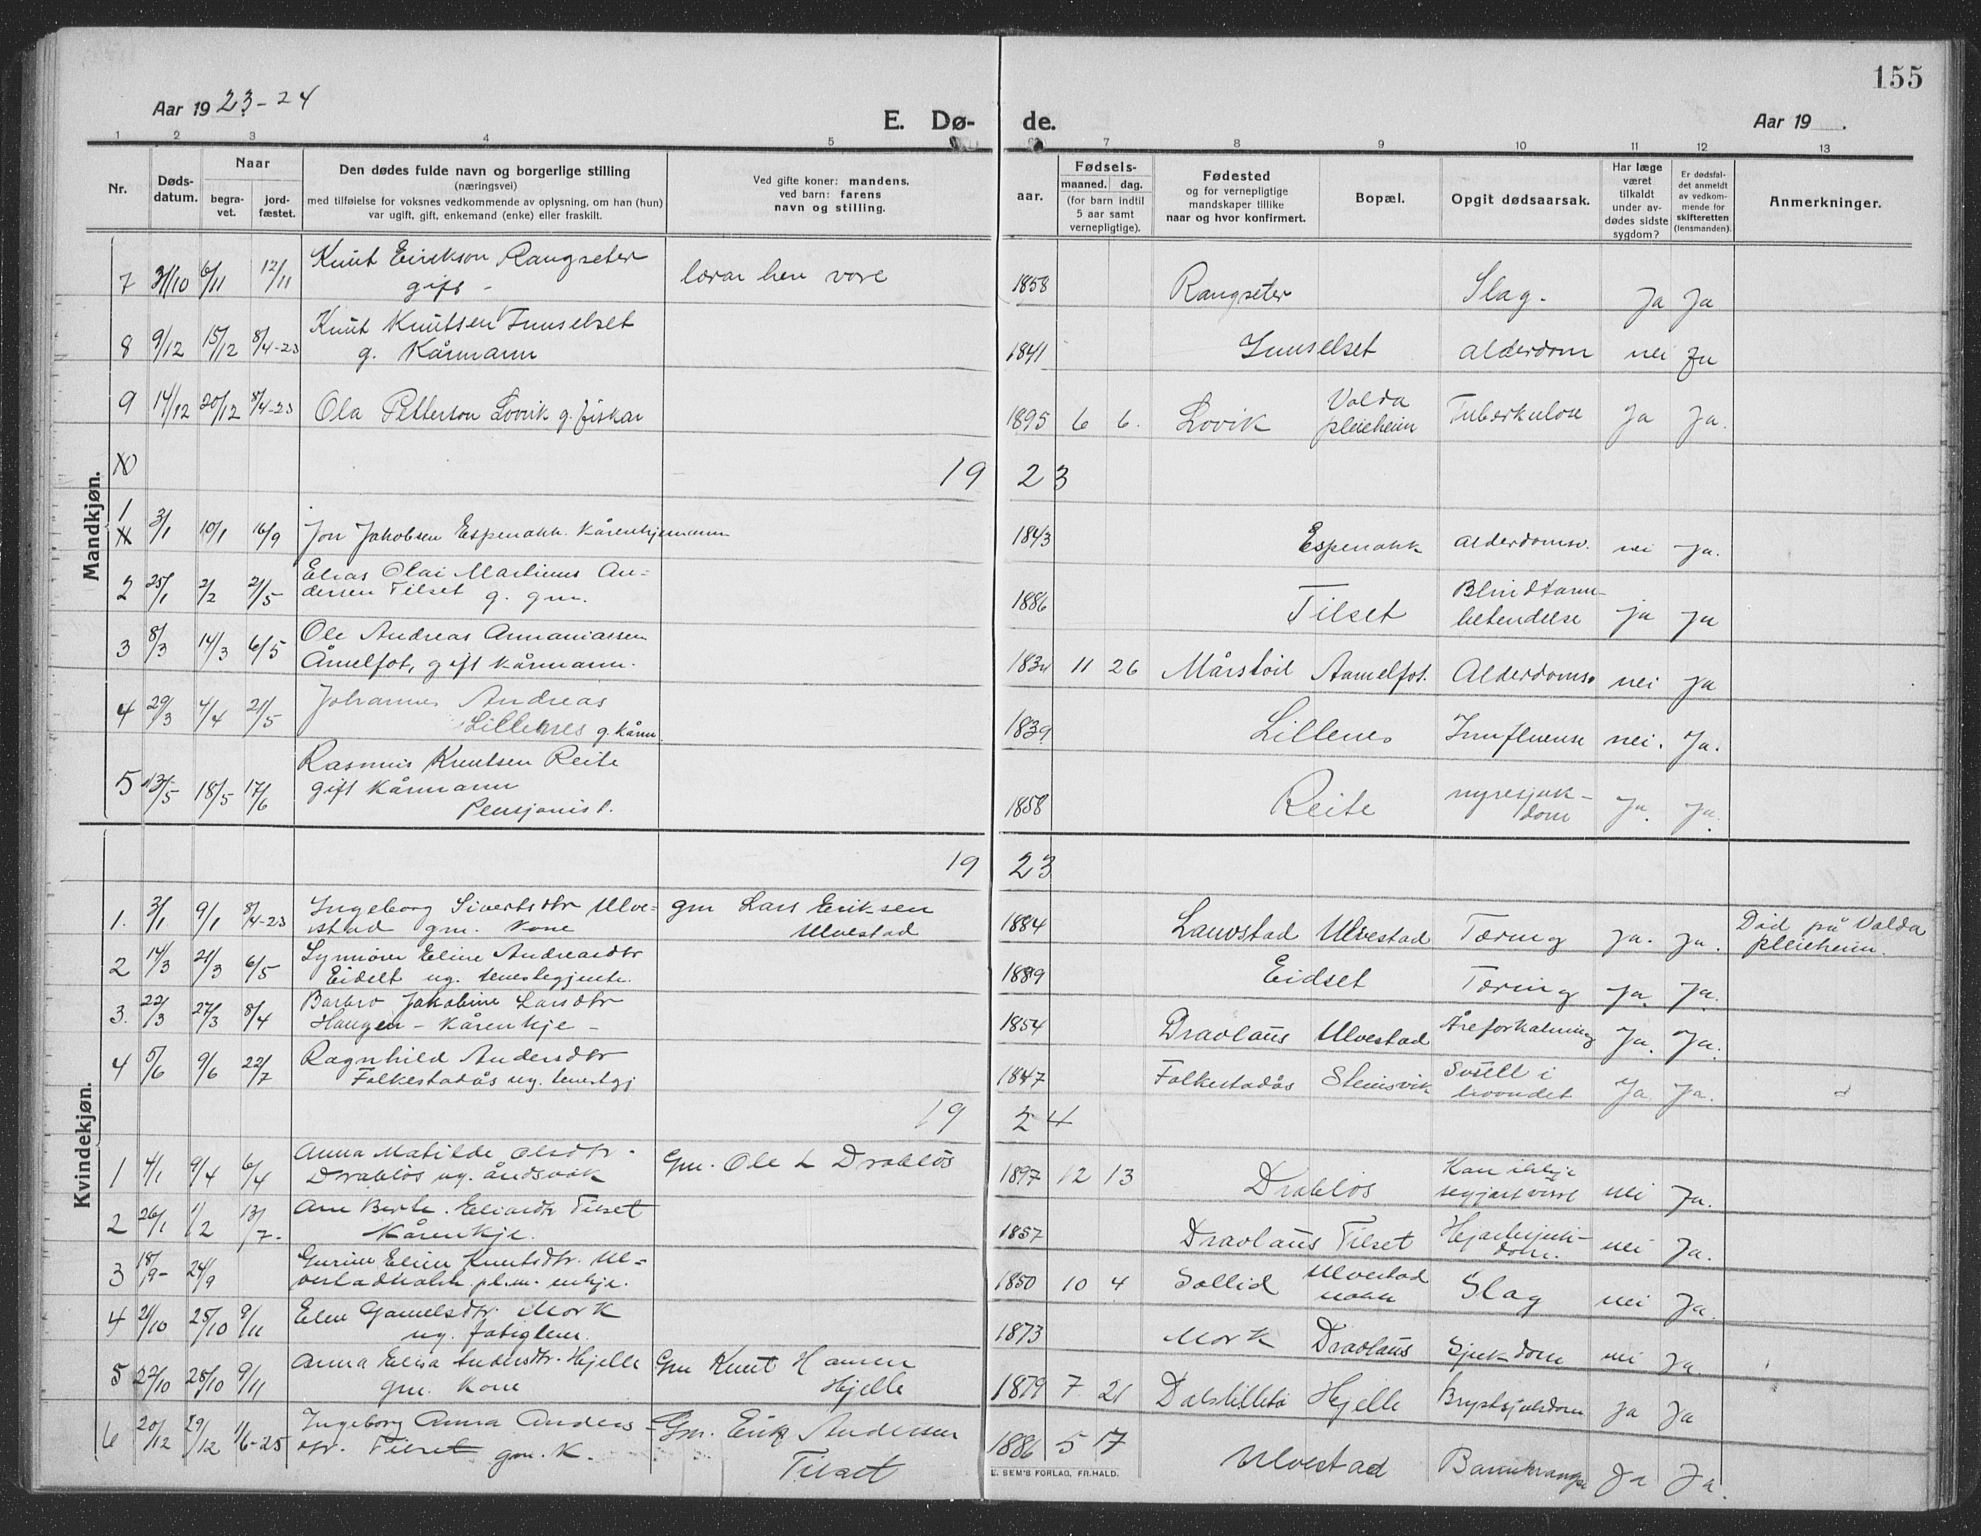 155
Aar 19 23-24
E. Dø- de.
Aar 19 .
1 2 3 4 5 7 8 9 10 11 12 13
Nr.
Døds-
datum.
Naar
begra-
vet.
jord-
fæstet.
Den dødes fulde navn og borgerlige stilling
(næringsvei)
med tilføielse for voksnes vedkommende av oplysning, om han (hun)
var ugift, gift, enkemand (enke) eller fraskilt.
Ved gifte koner: mandens,
ved barn: farens
navn og stilling.
Fødsels-
aar.
maaned. dag.
(for barn indtil
5 aar samt
vernepligtige).
Fødested
og for vernepligtige
mandskaper tillike
naar og hvor konfirmert.
Bopæl.
Opgit dødsaarsak.
Har læge
været
tilkaldt
under av-
dødes sidste
sygdom?
Er dødsfal-
det anmeldt
av vedkom-
mende for
skifteretten
(lensmanden).
Anmerkninger.
Mandkjøn.
7 31/10 6/11 12/11 Knut Eirikson Rangseter
gift - lærar hen vore 1858 Rangseter Slag. Ja Ja
8 9/12 15/12 8/4-23 Knut Knutsen Innselset
g. Kårmann 1841 Innselset alderdom nei Ja
9 14/12 20/12 8/4-23 Ola Petterson Lovik g. fiskar 1895 6 6. Lovik Volda
pleieheim Tuberkulose Ja Ja.
10 19 23
1 3/1 10/1 16/9 Jon Jakobsen Espenakk. Kårenkjemann 1843 Espenakk alderdomsv. nei Ja.
2 25/1 2/2 21/5 Elias Olai Martinus An-
dersen Tilset g. gm. 1886 Tilset Blindtarm-
betendelse ja Ja
3 8/3 14/3 6/5 Ole Andreas Annaniassen
Åmelfot, gift kårmann. 11 26 Mårstøil Aamelfot. Alderdomsv nei Ja
4 29/3 4/4 21/5 Johannes Andreas
Lillenes g. kårm. 1839 Lillenes Innfluense nei. Ja.
5 13/5 18/5 17/6 Rasmus Knutsen Reite
gift kårmann
Pensjonist. 1858 Reite nyresjuk-
dom Ja. Ja.
Kvindekjøn.
19 23
1. 3/1 9/1 8/4-23 Ingeborg Sivertsdtr Ulve-
stad gm. kone gm Lars Eriksen
Ulvestad 1884 Lauvstad Ulvestad Tæring Ja. Ja. Død på Volda
pleieheim.
2 14/3 21/3 6/5 Synnøve Eline Andreasdtr
Eidset ug. tenestegjente. 1889 Eidset Tæring Ja. Ja.
3. 22/3 27/3 8/4 Barbro Jakobine Larsdtr
Haugen - Kårenkje - 1854 Dravlaus Ulvestad Åreforkalkning Ja. Ja.
4 5/6 9/6 22/7 Ragnhild Andersdtr
Falkestadås ug. tenestgj 1847 Falkestadås Steinsvik Svull i
Ja Ja.
19 24
1 4/1 9/4 6/4 Anna Matilde Olsdtr.
Drabløs ug. åndsvak Gm. Ole L Drabløs 1897 12 13 Drabløs Kan ikkje
segjast visst nei Ja.
2 26/1 1/2 13/7. Ane Berte. Eliasdtr Tilset
Kårenkje. 1857 Dravlaus Tilset Hjartesjuk-
dom. nei Ja.
3 18/9- 24/9 Gurine Eline Knutsdtr. Ul-
vestadnakk. pl.m. enkje. 1850 10 4 Sollid Ulvestad
nakk Slag nei Ja.
4 21/10 25/10 9/11 Elen Gamelsdtr. Mork
ug. fatiglem. 1873 Mork Dravlaus Sjukdom nei Ja.
5 22/10 28/10 9/11 Anna Elisa Andersdtr. Hjelle
gm. Kone Gm Knut Hansen
Hjelle 1879 7. 21 Hjelle Brystsjukdom Ja Ja
6 20/12 29/12 1/6-25 Ingeborg Anna Anders-
dtr. Tilset gm. K. Gm. Erik Andersen
Tilset 1886 5 17 Ulvestad Ja Ja.
E. SEM'S FORLAG, FR.HALD.